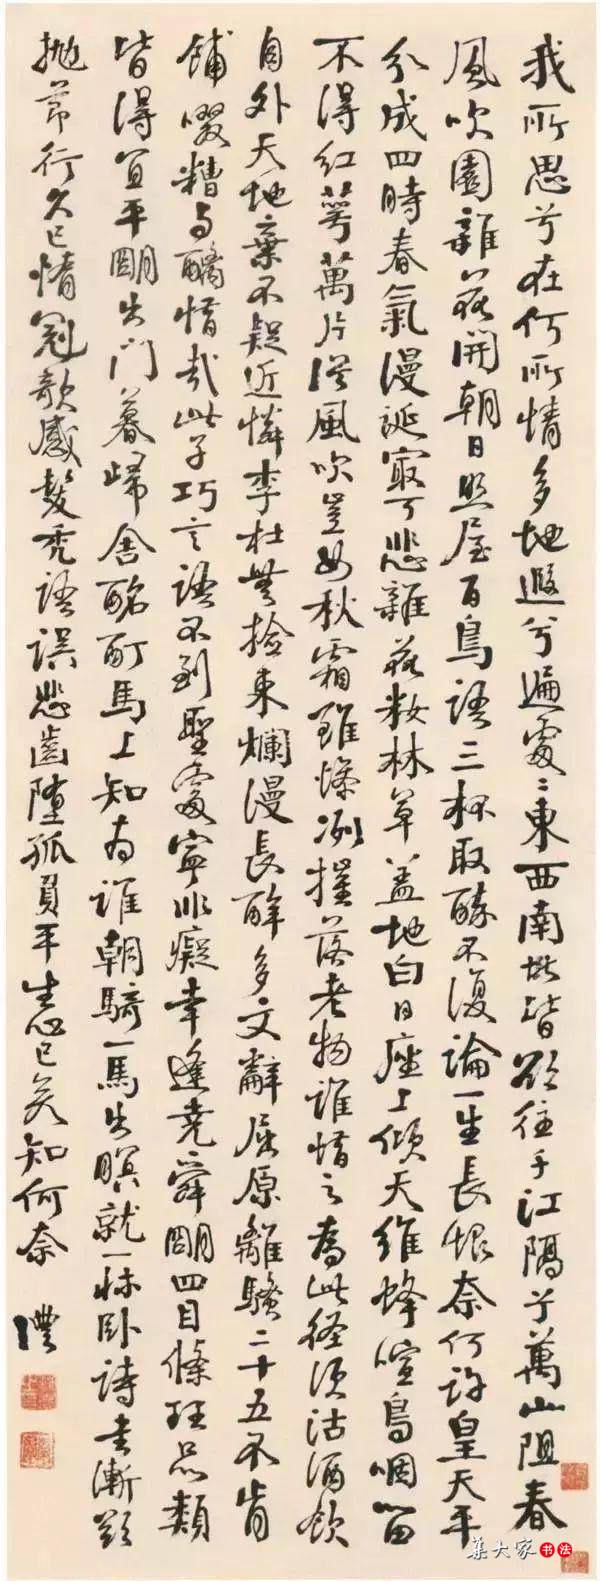 我所思兮在何所情多地遐兮遍處〻東西南北皆欲往千江隔兮萬山阻春
風吹園雜花開朝日照屋百鳥語三杯取醉不復論一生長恨奈何許皇天平
分成四時春氣漫誕最可悲雜花妝林草蓋地白日座上傾天維蜂喧鳥咽留
不得紅萼萬片從風吹豈如秋霜雖慘冽摧落老物誰惜之為此徑須沽酒飲
自外天地棄不疑近憐李杜無檢束爛漫長醉多文辭屈原離騷二十五不肯
餔啜糟與醨惜哉此子巧言語不到聖處寧非癡幸逢堯舜明四目條理品類
皆得宜平明出門暮歸舍酩酊馬上知為誰朝騎一馬出暝就一床臥詩書漸欲
拋節行久已惰冠欹感髮禿語誤悲齒墮孤負平生心已矣知何奈 澧
集大家书法